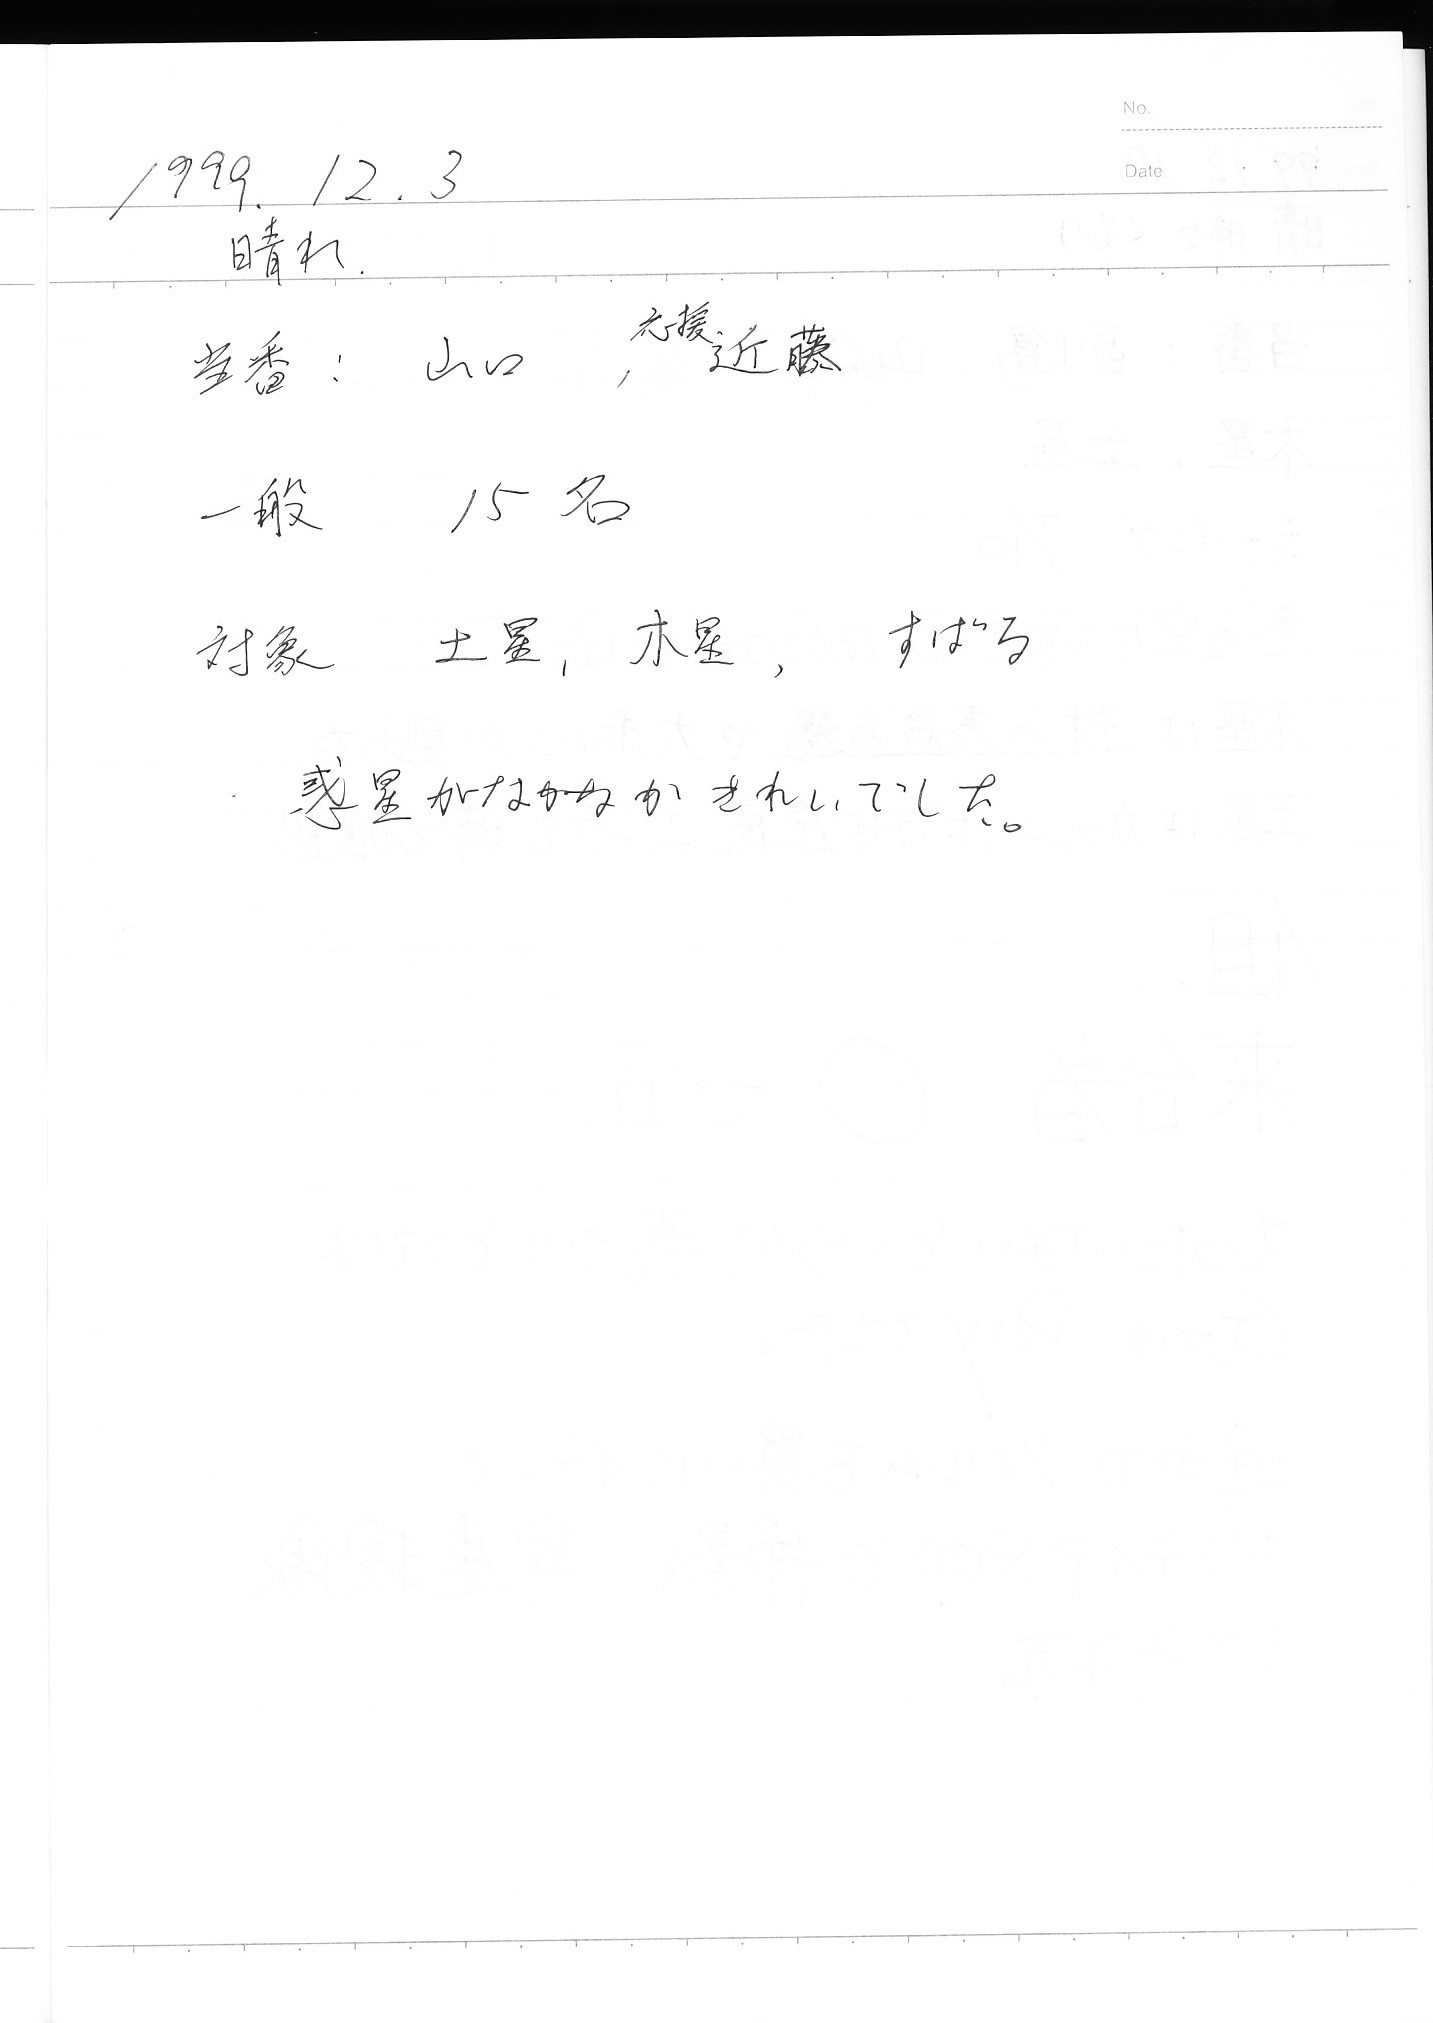 No.
Date
1999. 12. 3
晴れ.
当番: 山口 , 応援 近藤
一般 15名
対象 土星, 木星, すばる
惑星がなかなかきれいでした。